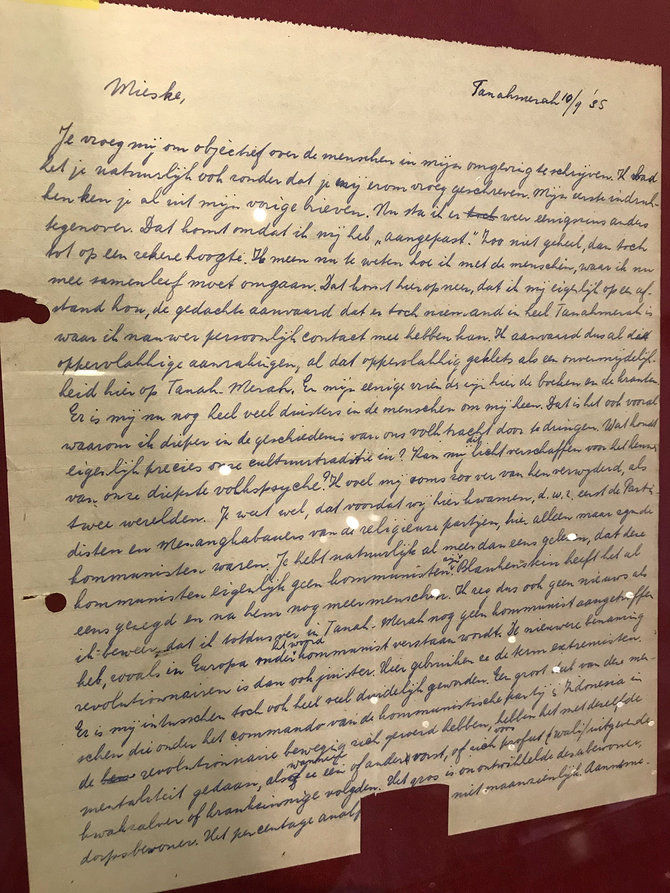 Mieske,
Tanahmerah 10/9 '35
Je vroeg mij om objectief over de menschen in mijn omgeving te schrijven. Ik had
het je natuurlijk ook zonder dat je mij erom vroeg geschreven. Mijn eerste indruk-
ken ken je al uit mijn vorige brieven. Nu sta ik er toch weer eenigszins anders
tegenover. Dat komt omdat ik mij heb „aangepast." Zoo niet geheel, dan toch
tot op een zekere hoogte. Ik meen nu te weten hoe ik met de menschen, waar ik nu
mee samenleef moet omgaan. Dat komt hierop neer, dat ik mij eigenlijk op een af-
stand hou, de gedachte aanvaard dat er toch niemand in heel Tanahmerah is
waar ik nauwer persoonlijk contact mee hebben kan. Ik aanvaard dus al die
oppervlakkige aanrakingen, al dat oppervlakkig geklets als een onvermijdelijk-
heid hier op Tanah-Merah. En mijn eenige vrienden zijn hier de boeken en de kranten.
Er is mij nu nog heel veel duisters in de menschen om mij heen. Dat is het ook vooral
waarom ik dieper in de geschiedenis van ons volk tracht door te dringen. Wat houdt
eigenlijk precies onze cultuurtraditie in? Kan mij dit licht verschaffen voor het kennen
van onze diepste volkspsyche? Ik voel mij soms zoo ver van hen verwijderd, als
twee werelden. Je weet wel, dat voordat wij hier kwamen, d.w.z. eerst de Parti-
disten en Menangkabauers van de religieuze partijen, hier alleen maar zgnde
kommunisten waren. Je hebt natuurlijk al meer dan eens gelezen, dat deze
kommunisten eigenlijk geen kommunisten zijn. Blankenstein heeft het al
eens gezegd en na hem nog meer menschen. Ik zeg dus ook geen nieuws als
ik beweer, dat ik totdusver in Tanah-Merah nog geen kommunist aangetroffen
heb, zooals in Europa onder het woord kommunist verstaan wordt. De nieuwere benaming
revolutionnairen is dan ook juister. Hier gebruiken ze de term extremisten.
Er is mij intusschen toch ook heel veel duidelijk geworden. Een groot deel van deze men-
schen die onder het commando van de kommunistische partij in Indonesia in
de revolutionnaire beweging zich geroerd hebben, hebben het met dezelfde
mentaliteit gedaan, alsof wanneer ze een of andere vorst, of zich voor profeet (wali) uitgevende
kwakzalver of krankzinnige volgden. Het gros is onontwikkelde desabewoner,
dorpsbewoner. Het percentage analf niet onaanzienlijk. Aanname.